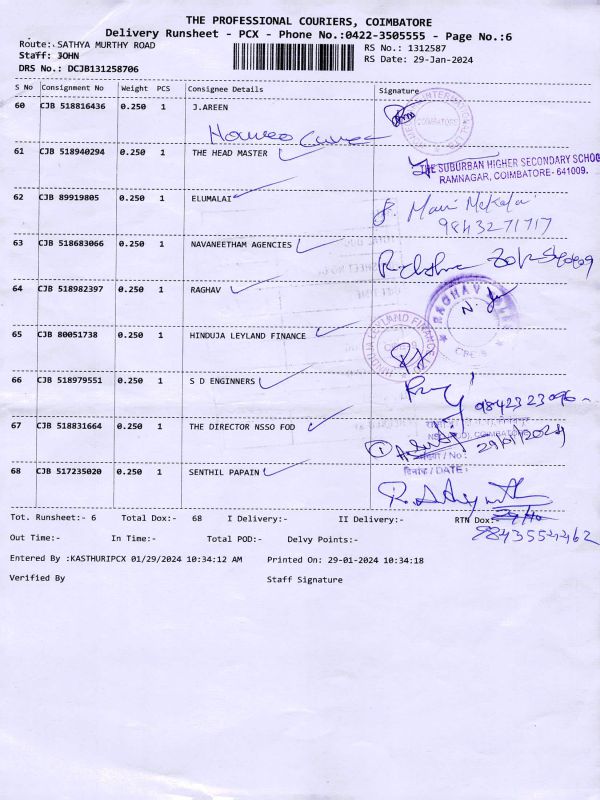 THE PROFESSIONAL COURIERS, COIMBATORE
Delivery Runsheet - PCX - Phone No.:0422-3505555 - Page No.:6
Route: SATHYA MURTHY ROAD
Staff: JOHN
DRS No.: DCJB131258706
RS No.: 1312587
RS Date: 29-Jan-2024
S No Consignment No Weight PCS Consignee Details Signature
60 CJB 518816436 0.250 1 J.AREEN
COIMBATORE
61 CJB 518940294 0.250 1 THE HEAD MASTER
THE SUBURBAN HIGHER SECONDARY SCHOO
RAMNAGAR, COIMBATORE- 641009.
62 CJB 89919805 0.250 1 ELUMALAI
9843271717
63 CJB 518683066 0.250 1 NAVANEETHAM AGENCIES
64 CJB 518982397 0.250 1 RAGHAV
RAGHAV
CBE-9
65 CJB 80051738 0.250 1 HINDUJA LEYLAND FINANCE
HINDUJA LEYLAND FINANCE
66 CJB 518979551 0.250 1 S D ENGINNERS
9842323096
67 CJB 518831664 0.250 1 THE DIRECTOR NSSO FOD
29/01/2024
दिनांक / DATE:
68 CJB 517235020 0.250 1 SENTHIL PAPAIN
Tot. Runsheet:- 6 Total Dox:- 68 I Delivery:- II Delivery:- RTN Dox:-
Out Time:- In Time:- Total POD:- Delvy Points:-
Entered By :KASTHURIPCX 01/29/2024 10:34:12 AM Printed On: 29-01-2024 10:34:18
Verified By Staff Signature